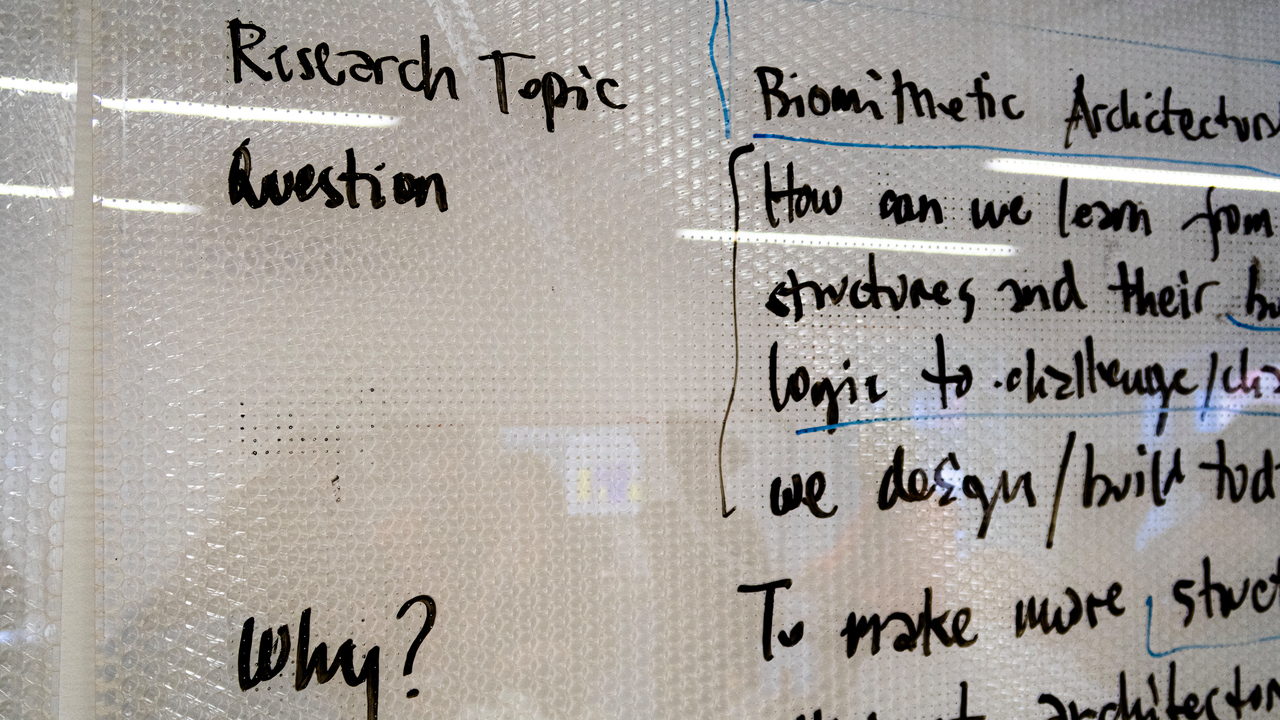 Research Topic
Biomimetic Architecture
Question
How can we learn from
structures and their
logic to challenge/
we design/build
Why?
To make more